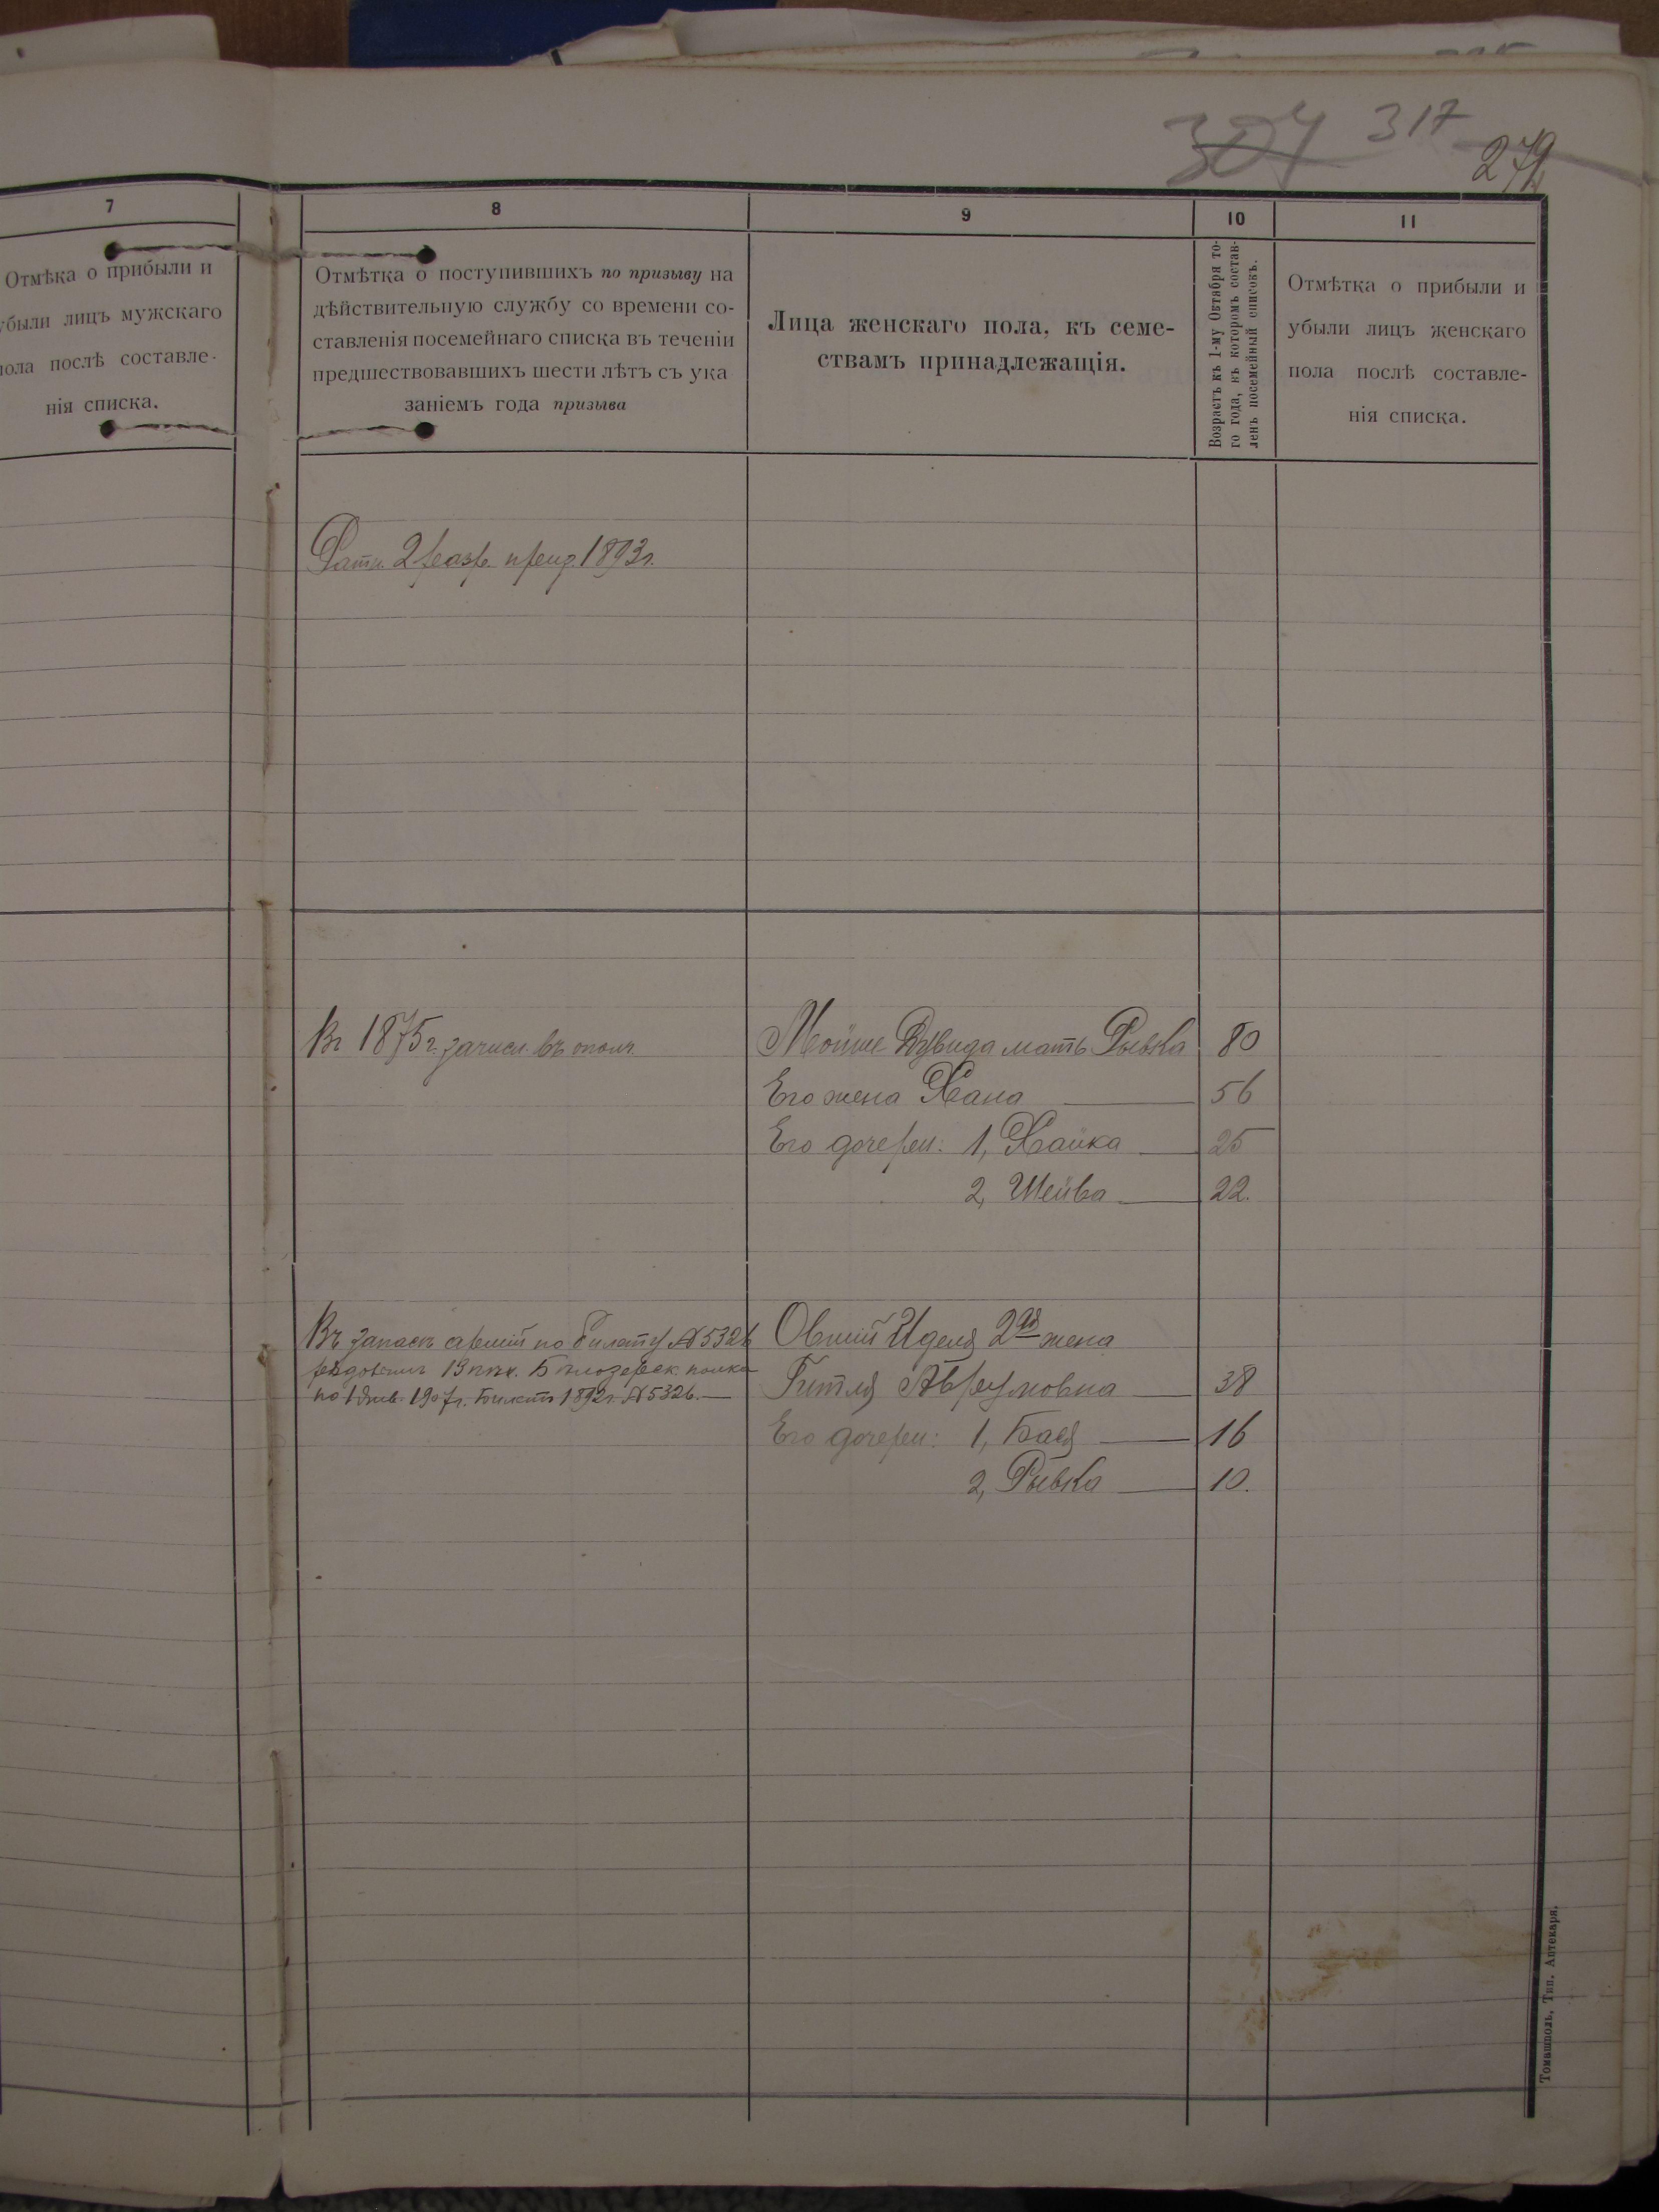 304 317
272
7
Отмѣка о прибыли и
убыли лицъ мужскаго
пола послѣ составле-
нія списка.
8
Отмѣтка о поступившихъ по призыву на
дѣйствительную службу со времени со-
ставленія посемейнаго списка въ теченіи
предшествовавшихъ шести лѣтъ съ ука
заніемъ года призыва
9
Лица женскаго пола, къ семе-
ствамъ принадлежащія.
10
Возрастъ къ 1-му Октября то-
го года, въ которомъ состав-
ленъ посемейный списокъ.
11
Отмѣтка о прибыли и
убыли лицъ женскаго
пола послѣ составле-
нія списка.
Ратн. 2 разр. 1893г.
Въ 1875г. зачисл. въ ополч.
Мойше Дувида мать Рывка 80
Его жена Хана 56
Его дочери: 1, Хайка 25
2, Шейва 22.
Въ запасъ арміи по билету № 5326
рядовымъ 13 пѣх. Бѣлозерск. полка
по 1 Янв. 1907г. Билетъ 1892г. № 5326.
Овшій Иделя 2ая жена
Гитля Аврумовна 38
Его дочери: 1, Бася 16
2, Рывка 10.
Томашполь, Тип. Аптекаря.